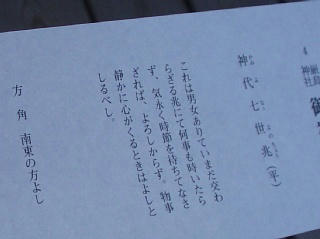 4
厳島神社
御
神代七世兆(平)
かみよななよのちょう
これは男女ありていまだ交わ
らざる兆にて何事も時いたら
ず、気永く時節を待ちてなさ
ざれば、よろしからず。物事
静かに心がくるときはよしと
しるべし。
方角 南東の方よし